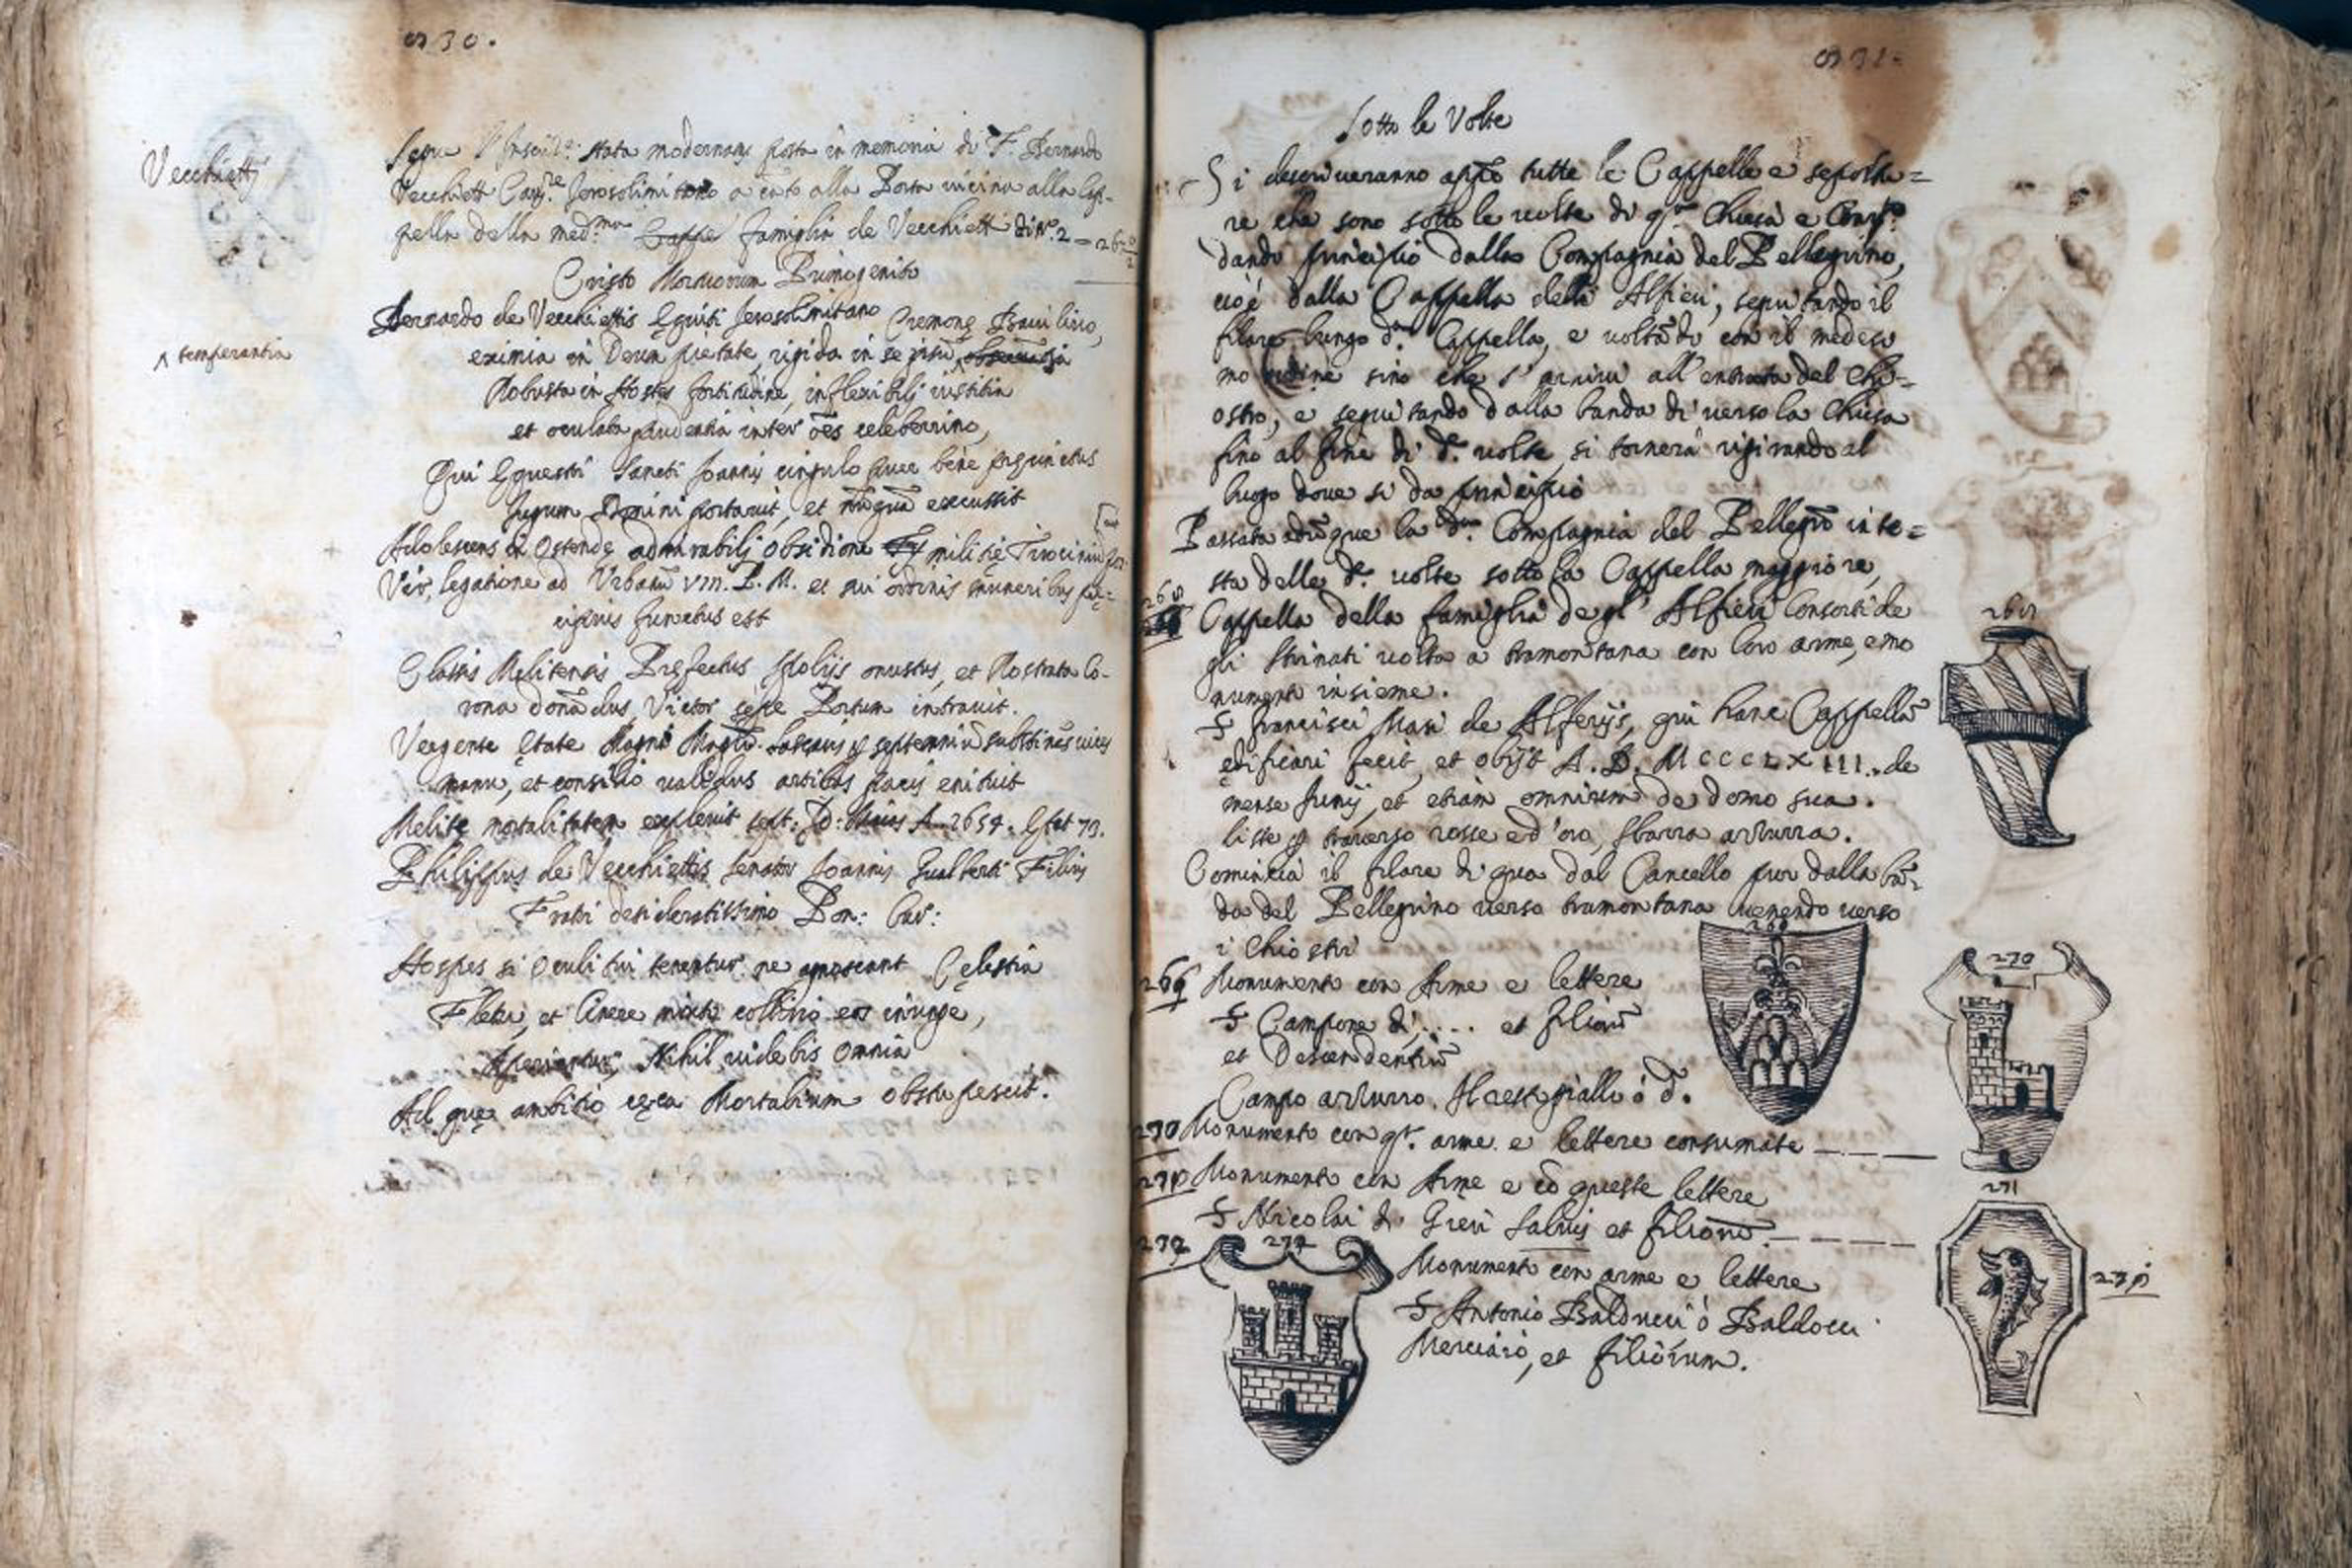 930.
Vecchietti
Segue stata modernam. posta in memoria di F. Bernardo
Vecchietti Cav.re Jerosolimitano a canto alla Porta vicina alla Cap-
pella della med.ma famiglia de Vecchietti di N.o 2
Cristo Mortuorum Primogenito
Bernardo de Vecchiettis Equiti Jerosolimitano Cremonę Baiulivo,
^ temperantia
eximia in Deum pietate, rigida in se ipsũ ^
Robusta in Hostes fortitudine, inflexibilj iustitia
et oculata prudentia inter oẽs celeberrimo,
Qui Equestri Sancti Joannis cingulo bene precinctus
Jugum Domini portavit, et nũquã excussit
Adolescens in Ostendę admirabilj obsidione militię Tirocinium
Vir, legatione ad Urbanũ VIII. P. M. et sui ordinis muneribus prę=
cipuis functus est
Classis Melitensis Prefectus spolijs onustus, et Rostrata Co-
rona donãdus, Victor sępe Portum intravit.
Vergente ętate Magni Magrĩ Lascaris p septenniũ substinẽs vices
manu, et consilio validus artibus pacis enituit
Melitę mortalitatem explevit sept: A. 1654. Ętat 73.
Philippus de Vecchiettis Senator Joannis Gualberti Filius
Fratri desideratissimo Pon: Cur:
Hospes si oculi tui tenentur ne agnoscant Cęlestia
Fletu, et Cinere mixtę collirio eos inunge,
Aperientur, Nihil videbis omnia
Ad quę ambitio cęca Mortalium obstupescit.
931.
Sotto le Volte
Si descriveranno app.o tutte le Cappelle e sepoltu=
re che sono sotto le volte di q.ta Chiesa e Conv.to
dando principio dalla Compagnia del Pellegrino,
cioè dalla Cappella delli Alfieri, seguitando il
filare lungo d.a Cappella, e voltãdo con il medesi
mo ordine sino che s'arrivi all'entrata del chi=
ostro, e seguitando dalla banda di verso la Chiesa
fino al fine di d.e volte si tornerà rigirando al
luogo dove si da principio
Passata adũque la d.a Compagnia del Pellegrõ in te=
sta delle d.e volte sotto la Cappella maggiore,
268 Cappella della famiglia de gl' Alfieri Consorti de
gli Strinati volta a tramontana con loro arme, e mo
numento insieme.
S Francisci Masi de Alferijs, qui hanc Cappellã
ędificari fecit, et obijt A. D. MCCCLXIII. de
mense Junij, et etiam omnium de domo sua.
liste p traverso rosse ed'oro, sbarra azzurra.
Comincia il filare di qua dal Cancello pur dalla bã-
da del Pellegrino verso tramontana venendo verso
i chiostri
269 Monumento con Arme e lettere
S Campone di .... et filiorũ
et Descendentiũ
Campo azzurro. Il resto giallo ò d.
270 Monumento con q.ta arme e lettere consumate
271 Monumento con Arme e cõ queste lettere
S Nicolai di Gieri Salvis et filiorũ
272 Monumento con arme e lettere
S Antonio Balducci ò Baldocci
Merciaio, et filiorum.
268
269
270
271
271
272